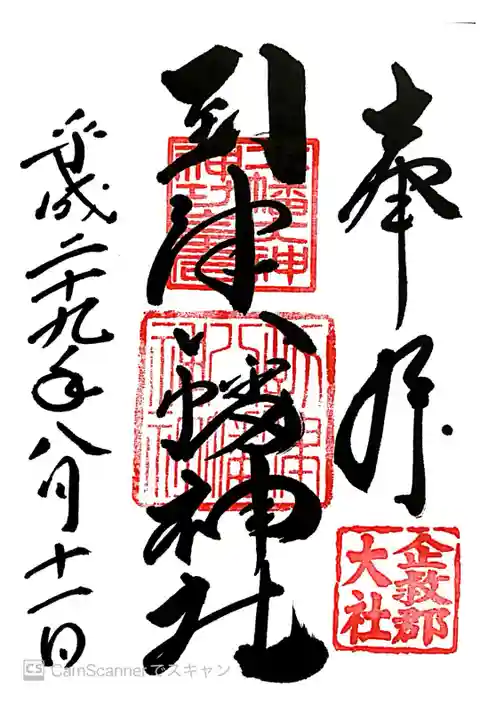 奉拝
企救郡
大社
到津八幡神社
平成二十九年八月十一日
CamScannerでスキャン